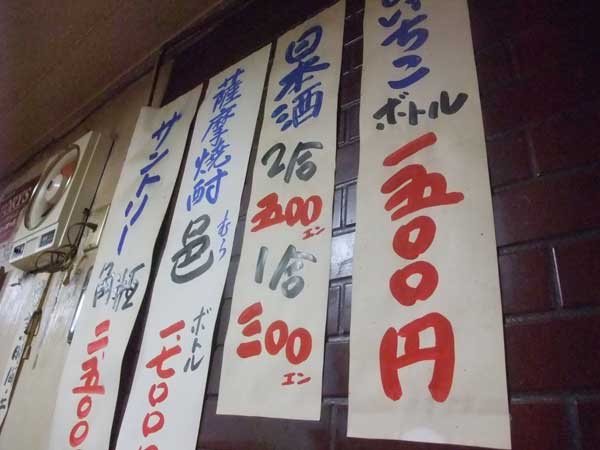 いいちこ
ボトル
一五〇〇円
日本酒
2合
五00エン
1合
三00エン
薩摩焼酎
邑
むら
ボトル
一、七〇〇
サントリー
角瓶
二、五〇〇